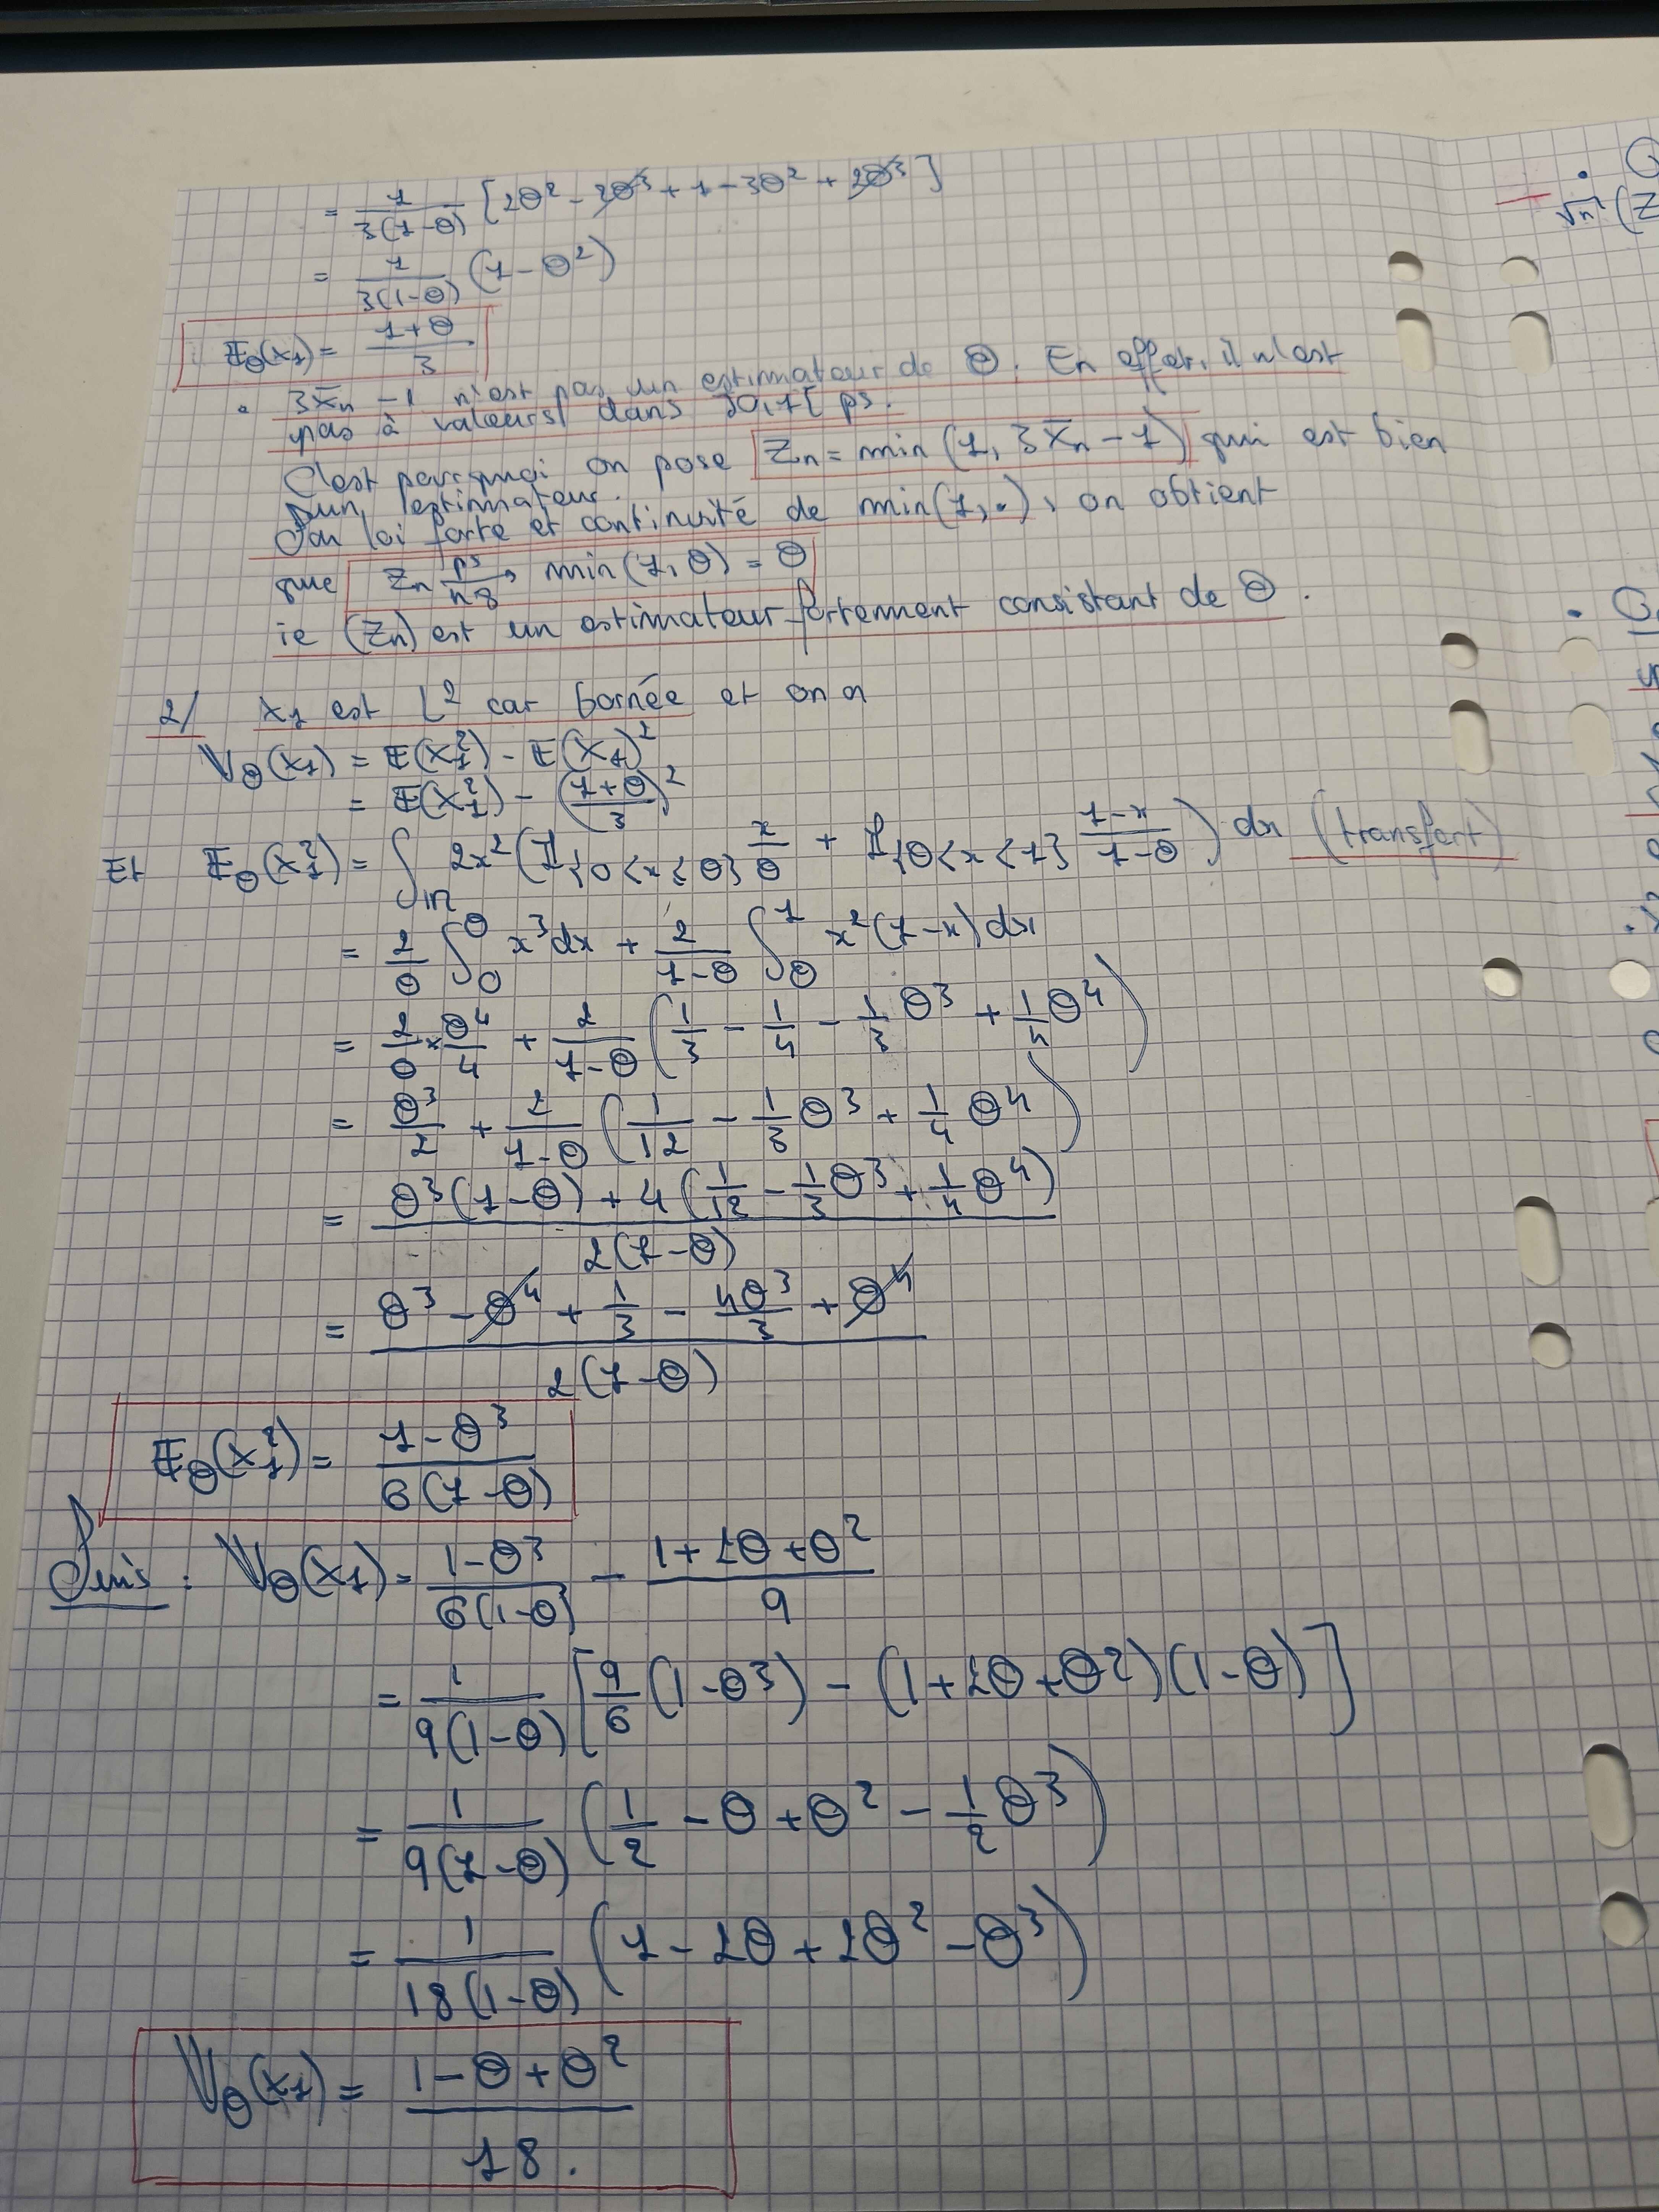 = 1/(3(1-θ)) [2θ² - 2θ³ + 1 - 3θ² + 2θ³]
= 1/(3(1-θ)) (1 - θ²)
𝔼θ(X₁) = (1+θ)/3
• 3X̄n - 1 n'est pas un estimateur de θ. En effet, il n'est
pas à valeurs dans ]0,1[ ps.
C'est pourquoi on pose Zn = min(1, 3X̄n - 1) qui est bien
un estimateur.
Par loi forte et continuité de min(1, •), on obtient
que Zn ps→ min(1, θ) = θ
ie (Zn) est un estimateur fortement consistant de θ.
2/ X₁ est L² car bornée et on a
𝕍θ(X₁) = 𝔼(X₁²) - 𝔼(X₁)²
= 𝔼(X₁²) - ((1+θ)/3)²
Et 𝔼θ(X₁²) = ∫_ℝ 2x² (𝟙{0<x≤θ} x/θ + 𝟙{θ<x<1} (1-x)/(1-θ)) dx (transfert)
= 2/θ ∫₀^θ x³dx + 2/(1-θ) ∫_θ^1 x²(1-x)dx
= 2/θ × θ⁴/4 + 2/(1-θ) (1/3 - 1/4 - 1/3 θ³ + 1/4 θ⁴)
= θ³/2 + 2/(1-θ) (1/12 - 1/3 θ³ + 1/4 θ⁴)
= (θ³(1-θ) + 4(1/12 - 1/3 θ³ + 1/4 θ⁴)) / (2(1-θ))
= (θ³ - θ⁴ + 1/3 - 4θ³/3 + θ⁴) / (2(1-θ))
𝔼θ(X₁²) = (1-θ³)/(6(1-θ))
Puis : 𝕍θ(X₁) = (1-θ³)/(6(1-θ)) - (1+2θ+θ²)/9
= 1/(9(1-θ)) [9/6 (1-θ³) - (1+2θ+θ²)(1-θ)]
= 1/(9(1-θ)) (1/2 - θ + θ² - 1/2 θ³)
= 1/(18(1-θ)) (1 - 2θ + 2θ² - θ³)
𝕍θ(X₁) = (1-θ+θ²)/18.
√n (Z